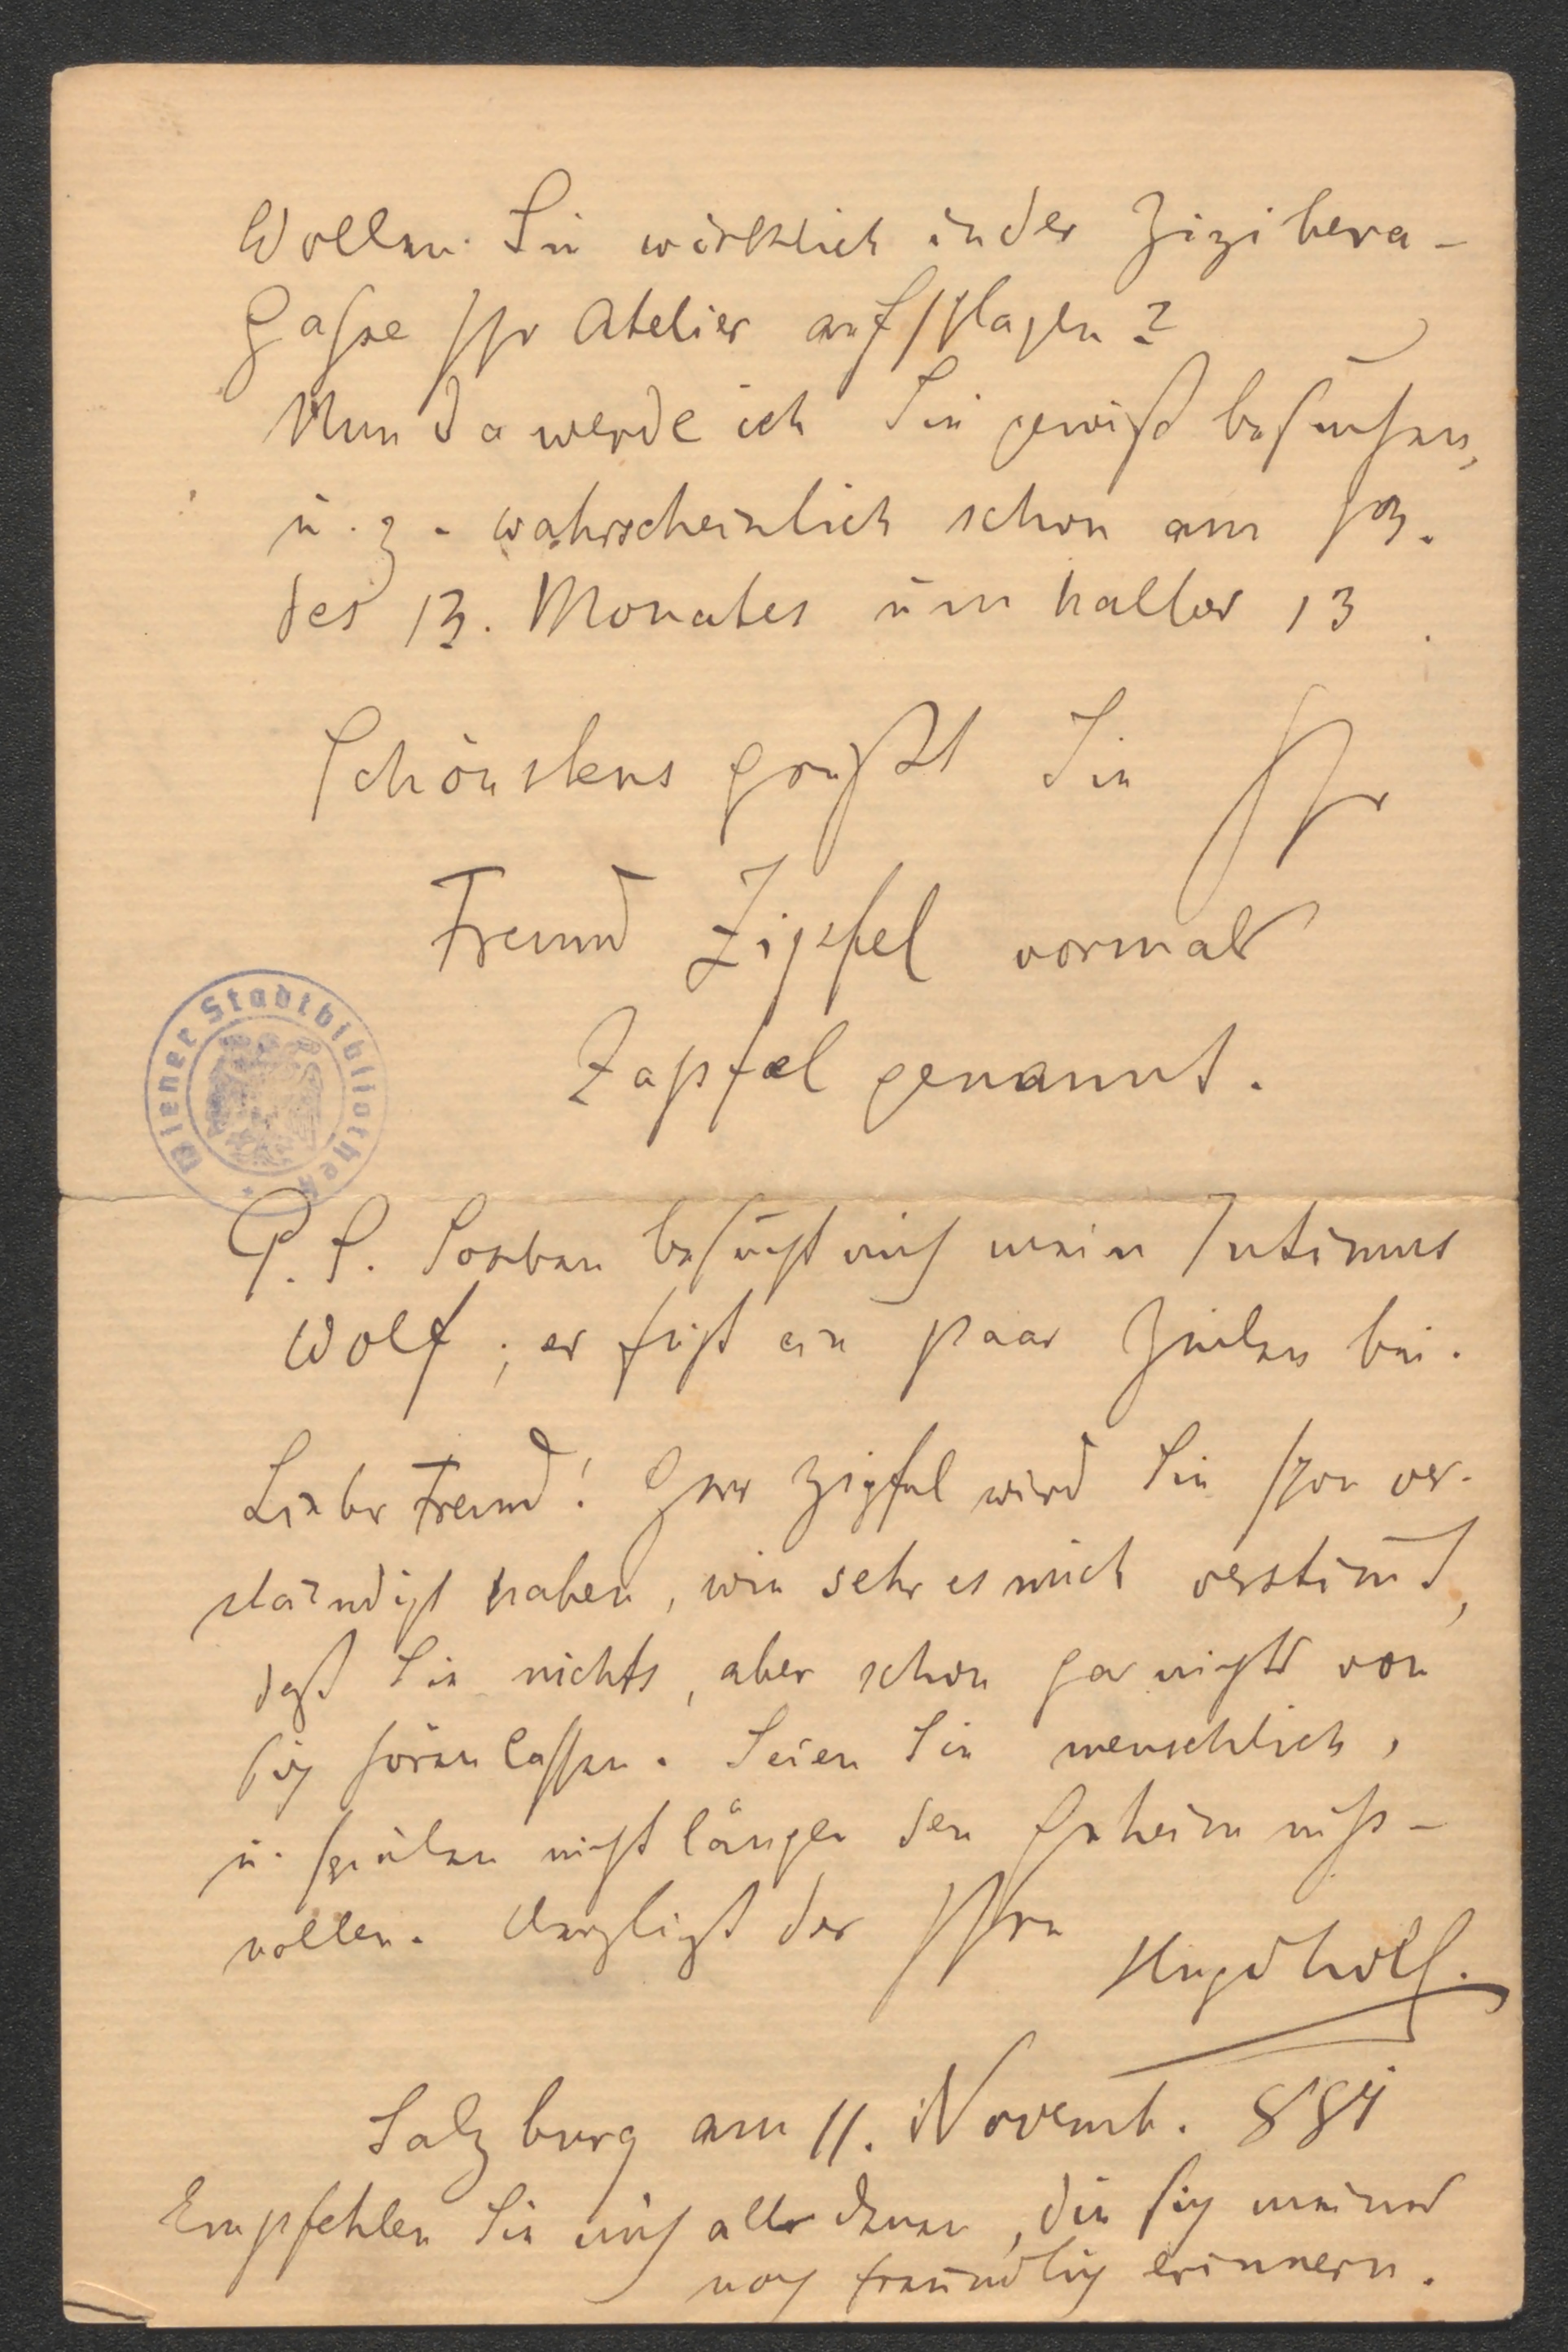 Wollen Sie wirklich in der Zizibera-
Gasse Ihr Atelier aufschlagen?
Nun da werde ich Sie gewiß besuchen,
u. z. wahrscheinlich schon am 13.
des 13. Monates um halber 13.
Schönstens grüßt Sie Ihr
Freund Zipfel vormals
Zapfel genannt.
Wiener Stadtbibliothek
P. S. Soeben besucht mich mein Intimus
Wolf; er fügt ein paar Zeilen bei.
Lieber Freund! Herr Zipfel wird Sie schon ver-
ständigt haben, wie sehr es mich verstimmt,
daß Sie nichts, aber schon gar nichts von
sich hören lassen. Seien Sie menschlich,
u. spielen nicht länger den Geheimniß-
vollen. Herzlichst der Ihre Hugo Wolf.
Salzburg am 11. Novemb. 881
Empfehlen Sie mich alle denen, die sich meiner
noch freundlich erinnern.